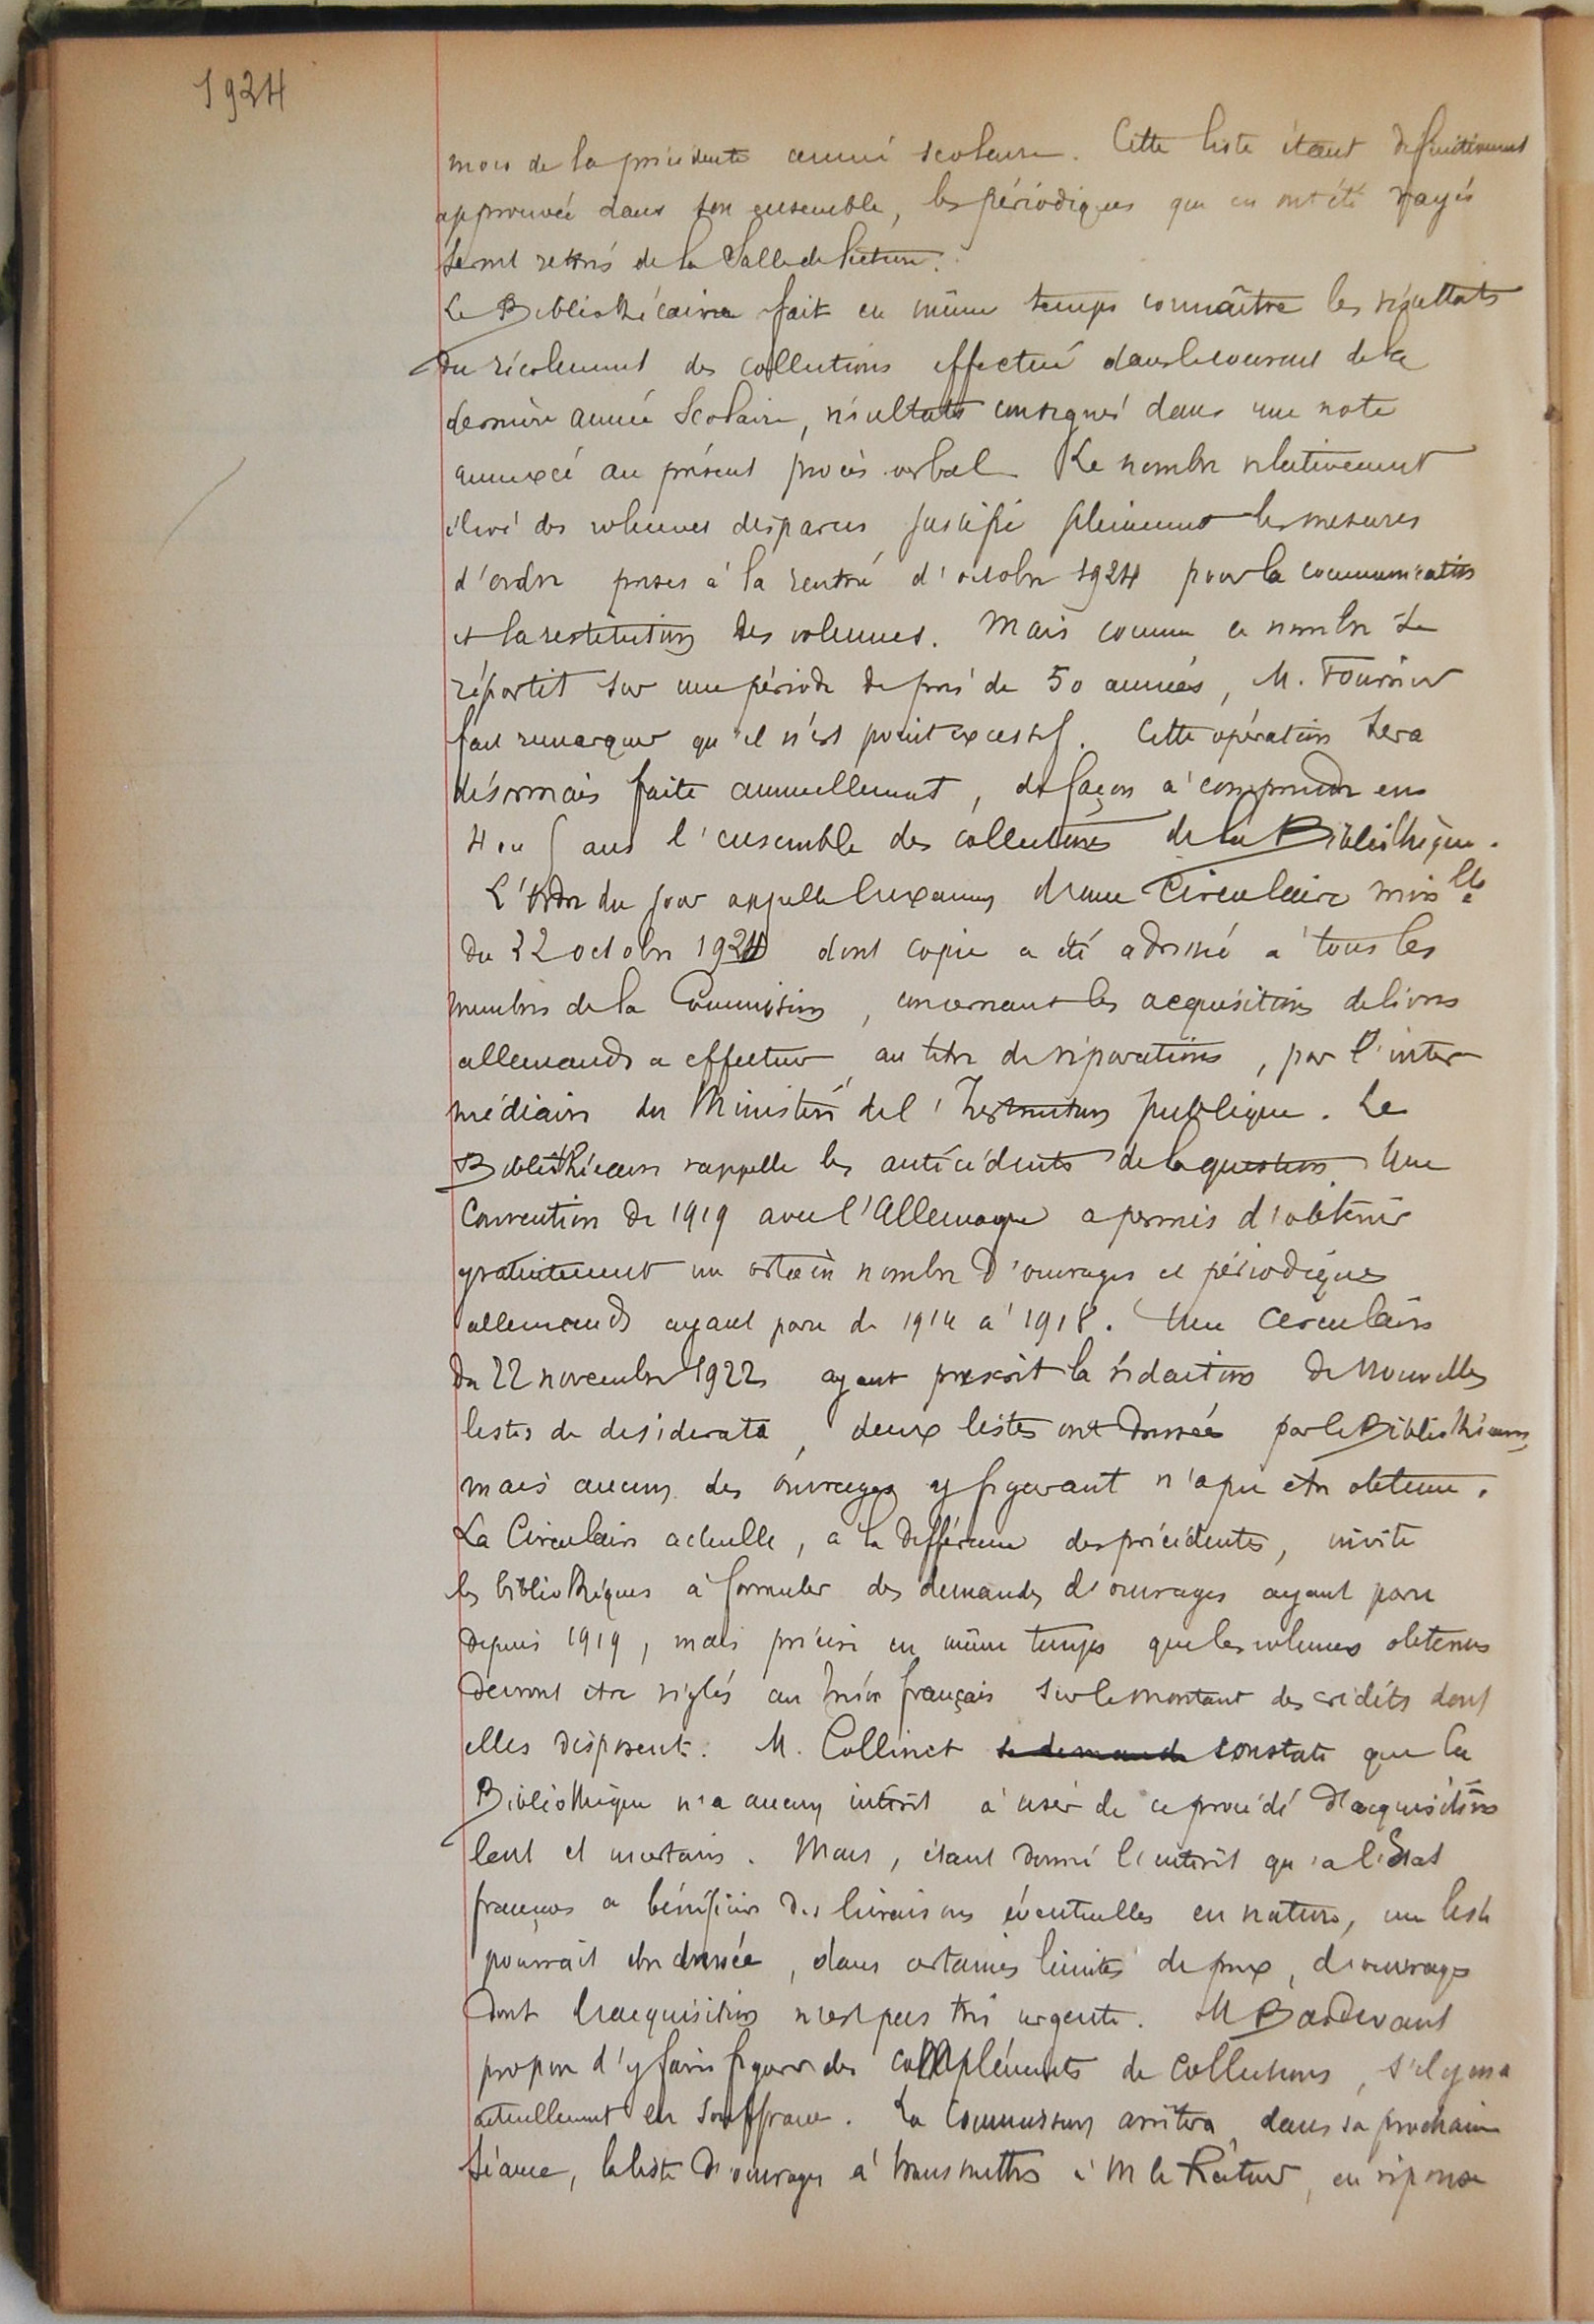 1924
mois de la précédente année scolaire. Cette liste étant définitivement
approuvée dans son ensemble, les périodiques qui en ont été rayés
seront retirés de la Salle de lecture.
Le Bibliothécaire fait en même temps connaître les résultats
du récolement des collections effectué dans le courant de la
dernière année scolaire, résultats consignés dans une note
annexée au présent procès verbal. Le nombre relativement
élevé des volumes disparus justifie pleinement les mesures
d'ordre prises à la rentrée d'octobre 1924 pour la communication
et la restitution des volumes. Mais comme ce nombre se
répartit sur une période de près de 50 années, M. Fournier
fait remarquer qu'il n'est point excessif. Cette opération sera
désormais faite annuellement, de façon à comprendre en
4 ou 5 ans l'ensemble des collections de la Bibliothèque.
L'ordre du jour appelle l'examen d'une Circulaire minlle
du 22 octobre 1924 dont copie a été adressée à tous les
membres de la Commission, concernant les acquisitions de livres
allemands à effectuer, au titre de réparations, par l'inter
médiaire du Ministère de l'Instruction publique. Le
Bibliothécaire rappelle les antécédents de la question. Une
Convention de 1919 avec l'Allemagne a permis d'obtenir
gratuitement un certain nombre d'ouvrages et périodiques
allemands ayant paru de 1914 à 1918. Une circulaire
du 22 novembre 1922 ayant prescrit la rédaction de nouvelles
listes de desiderata, deux listes ont dressées par le Bibliothécaire,
mais aucun des ouvrages y figurant n'a pu être obtenu.
La Circulaire actuelle, à la différence des précédentes, invite
les bibliothèques à formuler des demandes d'ouvrages ayant paru
depuis 1919, mais précise en même temps que les volumes obtenus
devront être réglés au trésor français sur le montant des crédits dont
elles disposent. M. Collinet se demande constate que la
Bibliothèque n'a aucun intérêt à user de ce procédé d'acquisitions
lent et incertain. Mais, étant donné l'intérêt qu'a l'Etat
français à bénéficier des livraisons éventuelles en nature, une liste
pourrait être dressée, dans certaines limites de prix, d'ouvrages
dont l'acquisition n'est pas très urgente. M Basdevant
propose d'y faire figurer des compléments de collections, s'il y en a
actuellement en souffrance. La Commission arrêtera, dans sa prochaine
séance, la liste d'ouvrages à transmettre à M le Recteur, en réponse